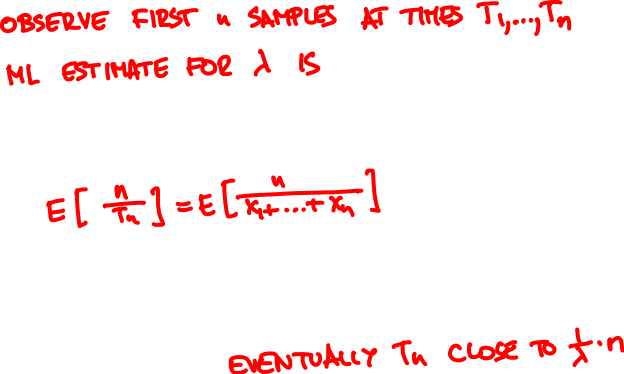 OBSERVE FIRST n SAMPLES AT TIMES T₁,...,Tₙ
ML ESTIMATE FOR λ IS
E[ n/Tₙ ] = E[ n/(X₁+...+Xₙ) ]
EVENTUALLY Tₙ CLOSE TO 1/λ · n